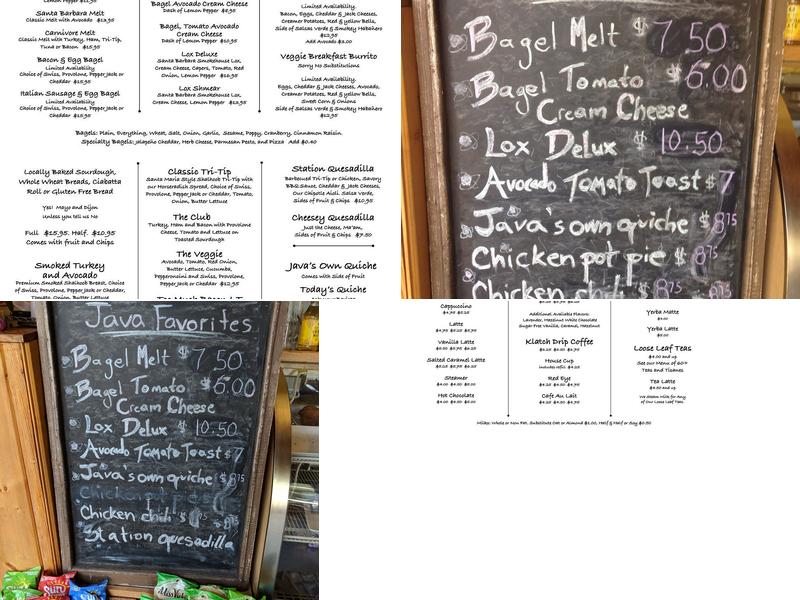 Lemon Pepper $11.95
Santa Barbara Melt
Classic Melt with Avocado $13.95
Carnivore Melt
Classic Melt with Turkey, Ham, Tri-Tip,
Tuna or Bacon $15.95
Bacon & Egg Bagel
Limited Availability
Choice of Swiss, Provolone, Pepper Jack or
Cheddar $15.95
Italian Sausage & Egg Bagel
Limited Availability
Choice of Swiss, Provolone, Pepper Jack or
Cheddar $15.95
Bagel Avocado Cream Cheese
Dash of Lemon Pepper $8.95
Bagel, Tomato Avocado
Cream Cheese
Dash of Lemon Pepper $10.95
Lox Deluxe
Santa Barbara Smokehouse Lox,
Cream Cheese, Capers, Tomato, Red
Onion, Lemon Pepper $15.95
Lox Shmear
Santa Barbara Smokehouse Lox,
Cream Cheese, Lemon Pepper $13.95
Limited Availability.
Bacon, Eggs, Cheddar & Jack Cheeses,
Creamer Potatoes, Red & yellow Bells,
Side of Salsas Verde & Smokey Habañero
$12.95
Add Avocado $2.00
Veggie Breakfast Burrito
Sorry No Substitutions
Limited Availability.
Eggs, Cheddar & Jack Cheeses, Avocado,
Creamer Potatoes, Red & yellow Bells,
Sweet Corn & Onions
Side of Salsas Verde & Smokey Habañero
$12.95
Bagels: Plain, Everything, Wheat, Salt, Onion, Garlic, Sesame, Poppy, Cranberry, Cinnamon Raisin.
Specialty Bagels: Jalapeño Cheddar, Herb Cheese, Parmesan Pesto, and Pizza Add $0.40
Locally Baked Sourdough,
Whole Wheat Breads, Ciabatta
Roll or Gluten Free Bread
Yes! Mayo and Dijon
Unless you tell us No
Full $15.95. Half. $10.95
Comes with fruit and Chips
Smoked Turkey
and Avocado
Premium Smoked Shalhoob Breast, Choice
of Swiss, Provolone, Pepper Jack or Cheddar,
Tomato, Onion, Butter Lettuce
Classic Tri-Tip
Santa Maria Style Shalhoob Tri-Tip with
our Horseradish Spread, Choice of Swiss,
Provolone, Pepper Jack or Cheddar, Tomato,
Onion, Butter Lettuce
The Club
Turkey, Ham and Bacon with Provolone
Cheese, Tomato and Lettuce on
Toasted Sourdough
The Veggie
Avocado, Tomato, Red Onion,
Butter Lettuce, Cucumba,
Pepperoncini and Swiss, Provolone,
Pepper Jack or Cheddar $12.95
Station Quesadilla
Barbecued Tri-Tip or Chicken, Savory
BBQ Sauce, Cheddar & Jack Cheeses,
Our Chipotle Aioli. Salsa Verde,
Sides of Fruit & Chips $10.95
Cheesey Quesadilla
Just the Cheese, Ma'am,
Sides of Fruit & Chips $7.50
Java's Own Quiche
Comes with Side of Fruit
Today's Quiche
Bagel Melt $7.50
Bagel Tomato $6.00
Cream Cheese
Lox Delux $10.50
Avocado Tomato Toast $7
Java's own quiche $8.75
Chicken pot pie $8.75
Chicken chili $8.75
Java Favorites
Bagel Melt $7.50
Bagel Tomato $6.00
Cream Cheese
Lox Delux $10.50
Avocado Tomato Toast $7
Java's own quiche $8.75
Chicken pot pie
Chicken chili
Station quesadilla
Cappuccino
Latte
Vanilla Latte
Salted Caramel Latte
Steamer
Hot Chocolate
Additional Available Flavors:
Lavender, Hazelnut White Chocolate
Sugar Free Vanilla, Caramel, Hazelnut
Klatch Drip Coffee
House Cup
Includes refill
Red Eye
Cafe Au Lait
Yerba Matte
Yerba Latte
Loose Leaf Teas
$4.00 and up
See our Menu of 60+
Teas and Ticanes
Tea Latte
$4.50 and up
We Steam Milk for Any
of Our Loose Leaf Teas
Milks: Whole or Non Fat, Substitute Oat or Almond $1.00, Half & Half or Soy $0.50